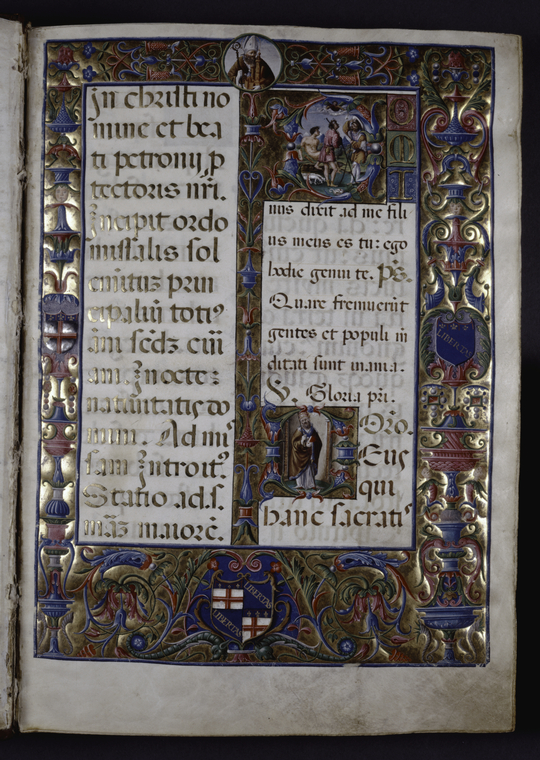 In christi no
mine et bea
ti petronij p
tectoris nri.
Incipit ordo
missalis sol
enitus prin
cipaliu toti⁹
ani scdz cur
am In octe
natiuitatis do
mini. Ad mi
sam Introit⁹
Statio ad s.
maz maiore.
D O
M I
nus dixit ad me fili
us meus es tu: ego
hodie genui te. ps.
Quare fremuerut
gentes et populi m
ditati sunt inania.
V. Gloria pri.
Oro.
Eus
qui
hanc sacrati
LIBERTAS
LIBERTAS
LIBERTAS